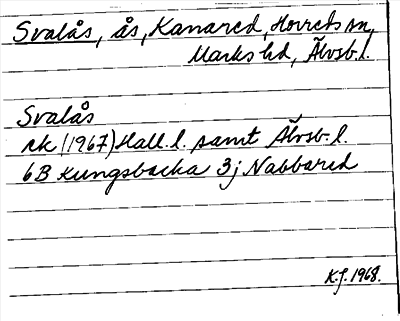 Svalås, ås, Kanared, Horreds sn,
Marks hd, Älvsb. l.
Svalås
ek (1967) Hall. l. samt Älvsb. l.
6B Kungsbacka 3j Nabbared
K.J. 1968.